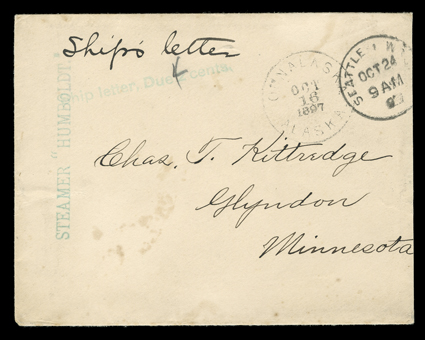 Ship's letter
Ship letter, Due cents.
STEAMER "HUMBOLDT"
OUNALASKA
OCT
16
1897
ALASKA
SEATTLE W
OCT 24
9 AM
Chas. T. Kittridge
Glyndon
Minnesota